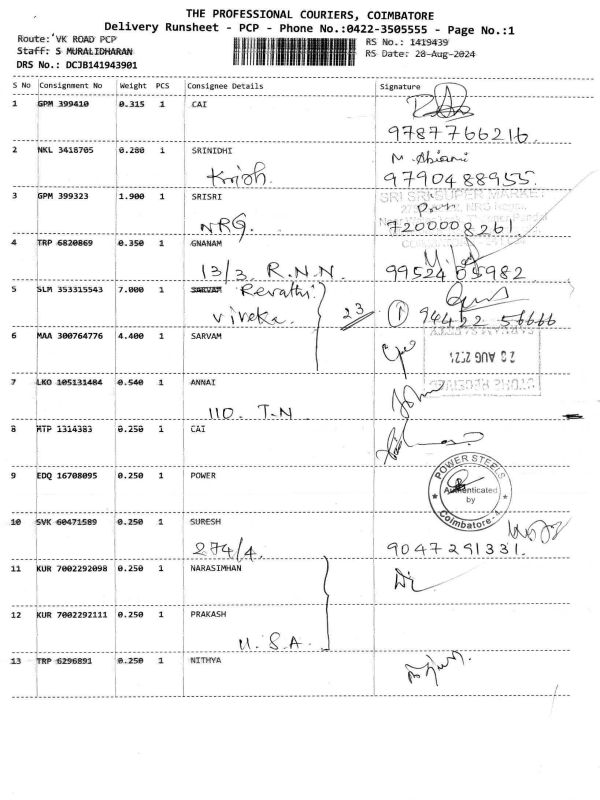 THE PROFESSIONAL COURIERS, COIMBATORE
Delivery Runsheet - PCP - Phone No.:0422-3505555 - Page No.:1
Route: VK ROAD PCP
RS No.: 1419439
Staff: S MURALIDHARAN
RS Date: 28-Aug-2024
DRS No.: DCJB141943901
S No Consignment No Weight PCS Consignee Details Signature
1 GPM 399410 0.315 1 CAI
9787766216.
2 NKL 3418705 0.280 1 SRINIDHI
Krish. 9790488955.
3 GPM 399323 1.900 1 SRISRI
SRI SRI SUPER MARKET
NRG. 7200008261.
4 TRP 6820869 0.350 1 GNANAM
13/3. R.N.N. 9952405982
5 SLM 353315543 7.000 1 SARVAM Revathi.
viveka. 23 1 94422 56666
6 MAA 300764776 4.400 1 SARVAM
28 AUG 2024
STORE RECEIVED
7 LKO 105131484 0.540 1 ANNAI
110. T.N
8 MTP 1314383 0.250 1 CAI
9 EDQ 16708095 0.250 1 POWER
POWER STEELS
Authenticated
by
Coimbatore-4.
10 SVK 60471589 0.250 1 SURESH
274/4. 9047291331.
11 KUR 7002292098 0.250 1 NARASIMHAN
12 KUR 7002292111 0.250 1 PRAKASH
U.S.A.
13 TRP 6296891 0.250 1 NITHYA